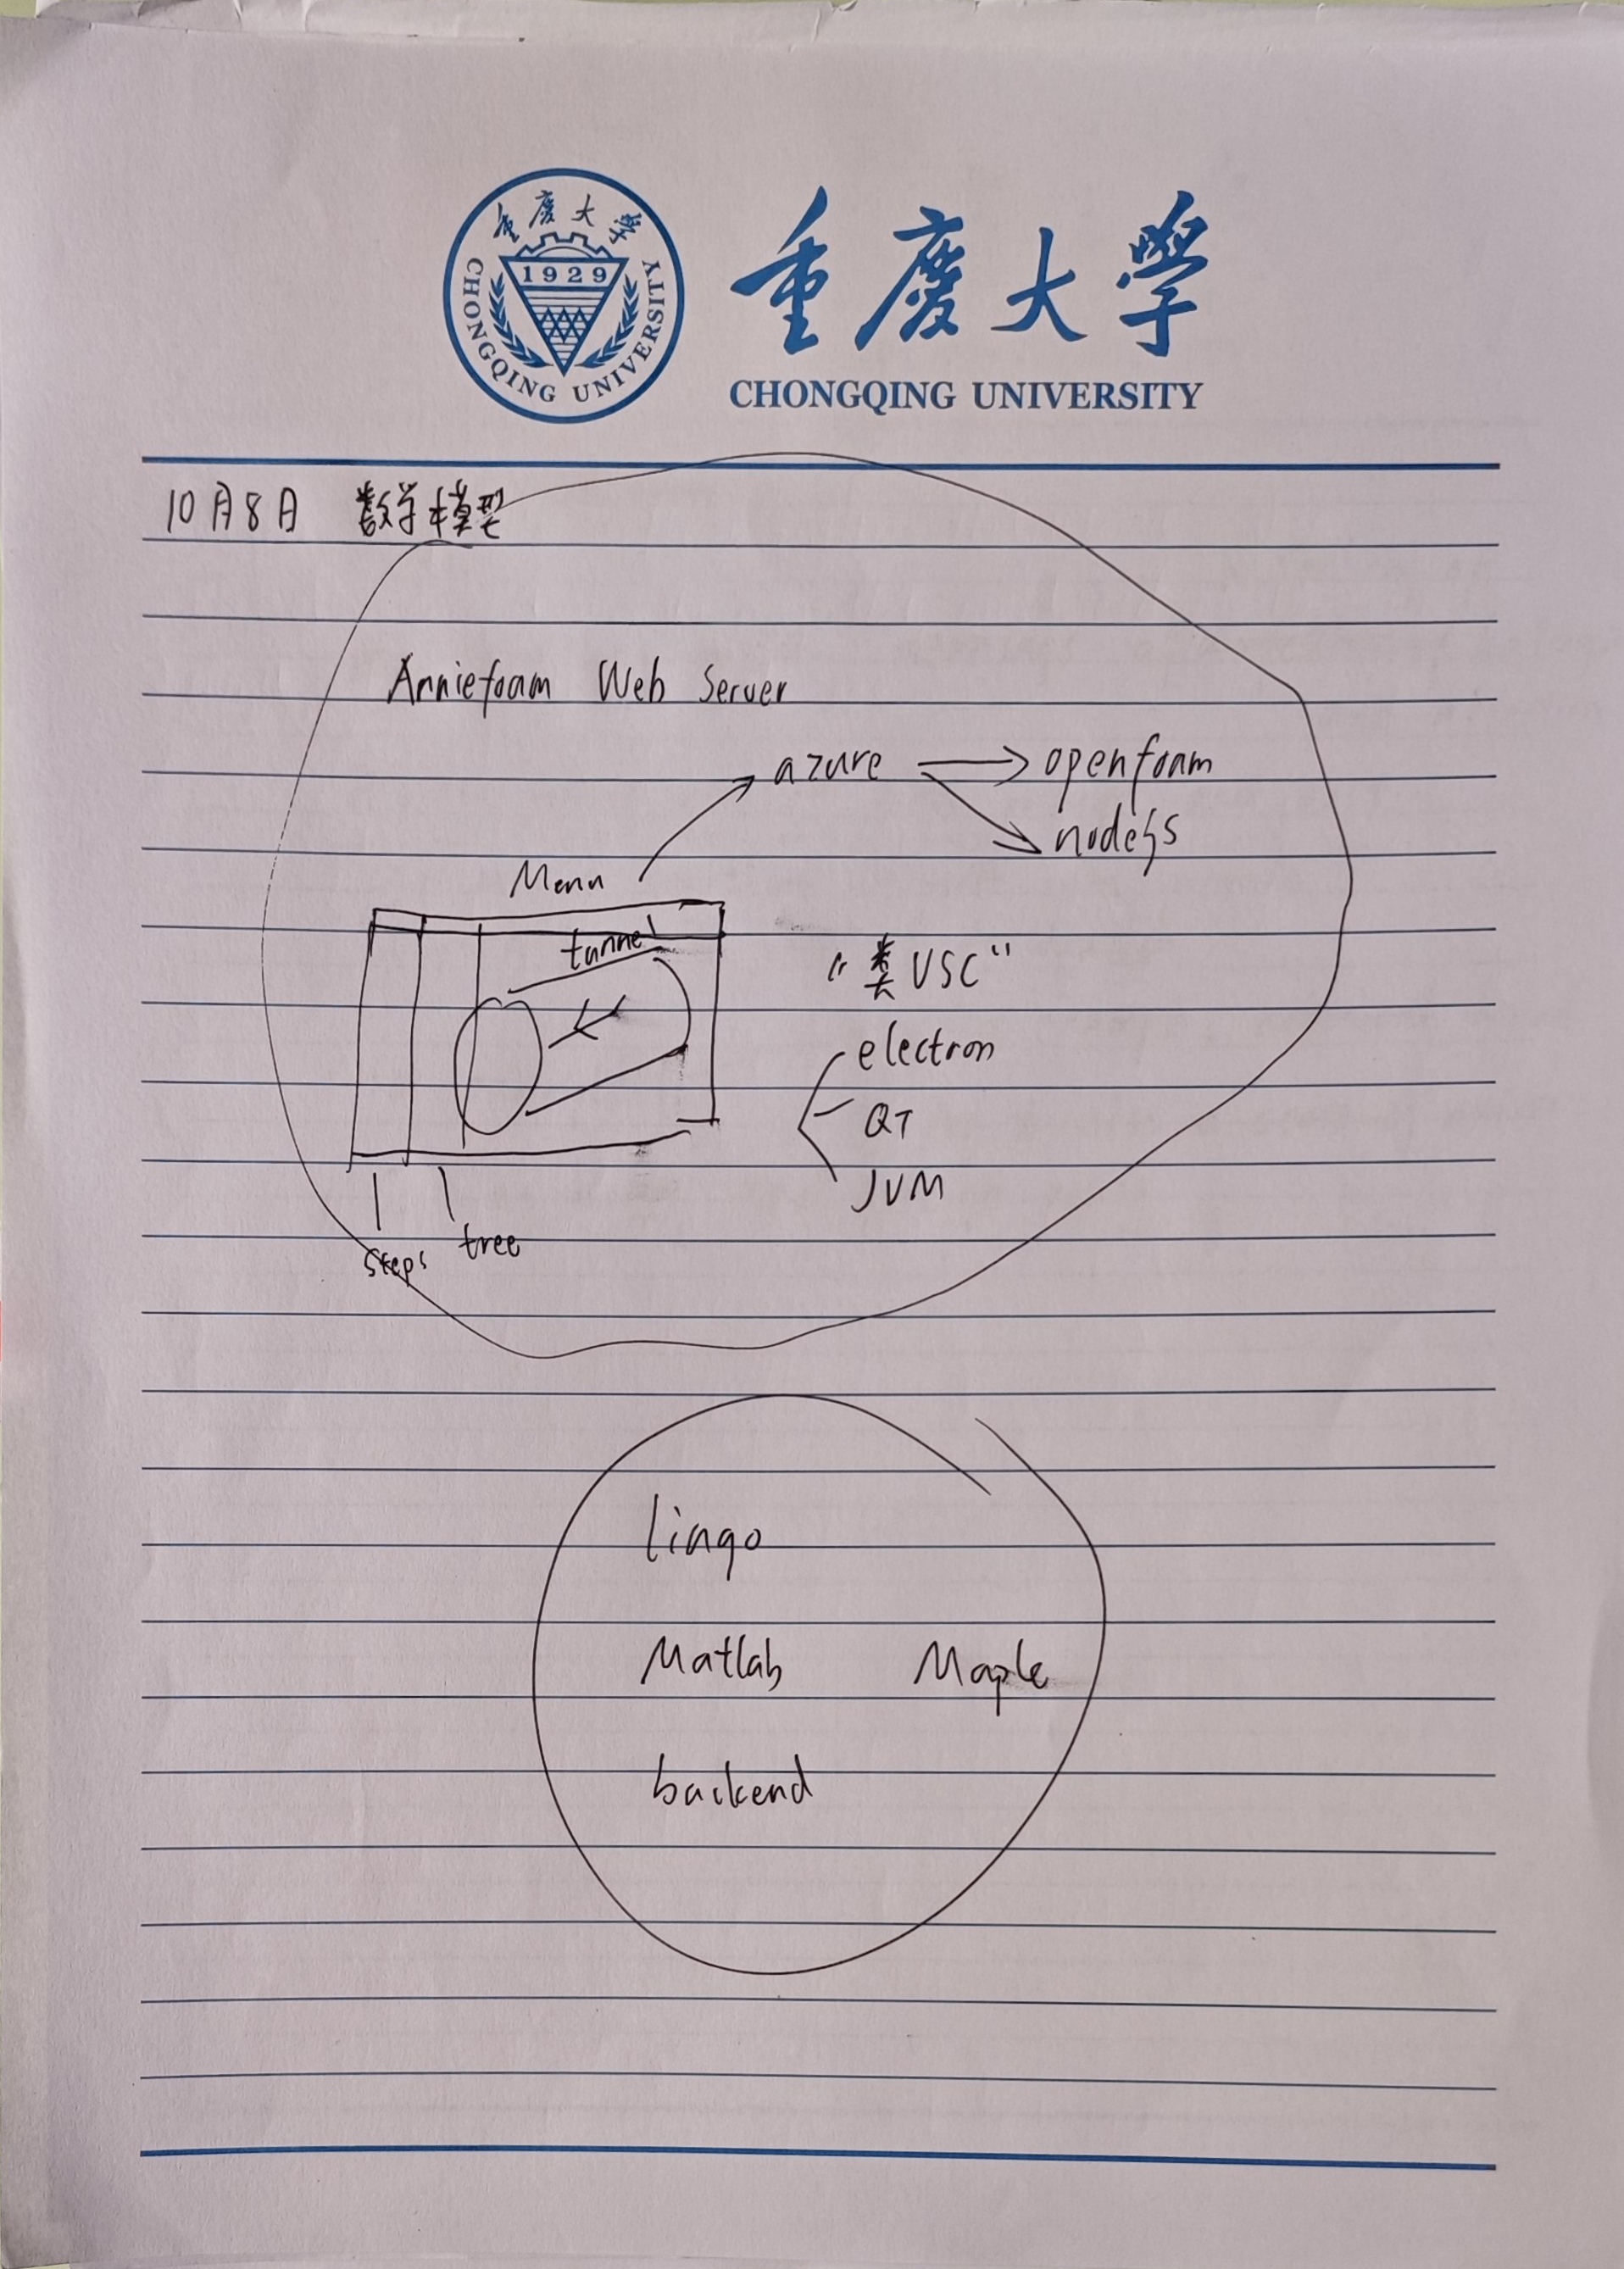 重慶大學
1929
CHONGQING UNIVERSITY
重慶大學
CHONGQING UNIVERSITY
10月8日 数学模型
Anniefoam Web Server
azure openfoam
nodejs
Menu
tunnel
"类VSC"
electron
QT
JVM
steps tree
lingo
Matlab Maple
backend